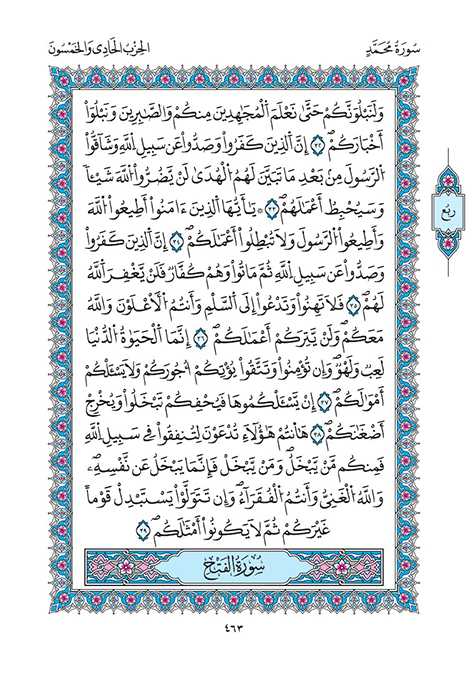 سُورَةُ مُحَمَّدٍ
الحِزْبُ الحَادِي وَالخَمْسُونَ
وَلَنَبْلُوَنَّكُمْ حَتَّىٰ نَعْلَمَ اَ۬لْمُجَٰهِدِينَ مِنكُمْ وَالصَّٰبِرِينَ وَنَبْلُوَاْ
أَخْبَارَكُمْۖ ٣٢ إِنَّ اَ۬لذِينَ كَفَرُواْ وَصَدُّواْ عَن سَبِيلِ اِ۬للَّهِ وَشَآقُّواْ
اُ۬لرَّسُولَ مِنۢ بَعْدِ مَا تَبَيَّنَ لَهُمُ اُ۬لْهُدَىٰ لَنْ يَّضُرُّواْ اُ۬للَّهَ شَيْـٔاٗ
وَسَيُحْبِطُ أَعْمَٰلَهُمْۖ ٣٣ ۞ يَٰٓأَيُّهَا اَ۬لذِينَ ءَامَنُوٓاْ أَطِيعُواْ اُ۬للَّهَ
وَأَطِيعُواْ اُ۬لرَّسُولَ وَلَا تُبْطِلُوٓاْ أَعْمَٰلَكُمُۥٓۖ ٣٤ إِنَّ اَ۬لذِينَ كَفَرُواْ
وَصَدُّواْ عَن سَبِيلِ اِ۬للَّهِ ثُمَّ مَاتُواْ وَهُمْ كُفَّارٞ فَلَنْ يَّغْفِرَ اَ۬للَّهُ
لَهُمْۖ ٣٥ فَلَا تَهِنُواْ وَتَدْعُوٓاْ إِلَى اَ۬لسَّلْمِ وَأَنتُمُ اُ۬لْأَعْلَوْنَ وَاللَّهُ
مَعَكُمْ وَلَنْ يَّتِرَكُمُۥٓ أَعْمَٰلَكُمُۥٓۖ ٣٦ إِنَّمَا اَ۬لْحَيَوٰةُ اُ۬لدُّنْيَا
لَعِبٞ وَلَهْوٞۖ وَإِن تُؤْمِنُواْ وَتَتَّقُواْ يُؤْتِكُمُۥٓ أُجُورَكُمْ وَلَا يَسْـَٔلْكُمُۥٓ
أَمْوَٰلَكُمُۥٓۖ ٣٧ إِنْ يَّسْـَٔلْكُمُوهَا فَيُحْفِكُمْ تَبْخَلُواْ وَيُخْرِجَ
أَضْغَٰنَكُمْۖ ٣٨ هَآنتُمْ هَٰٓؤُلَآءِ تُدْعَوْنَ لِتُنفِقُواْ فِي سَبِيلِ اِ۬للَّهِ
فَمِنكُم مَّنْ يَّبْخَلُۖ وَمَنْ يَّبْخَلْ فَإِنَّمَا يَبْخَلُ عَن نَّفْسِهِۦۖ
وَاللَّهُ اُ۬لْغَنِيُّ وَأَنتُمُ اُ۬لْفُقَرَآءُۖ وَإِن تَتَوَلَّوْاْ يَسْتَبْدِلْ قَوْماً
غَيْرَكُمْ ثُمَّ لَا يَكُونُوٓاْ أَمْثَٰلَكُمْۖ ٣٩
سُورَةُ الفَتْحِ
ربع
٤٦٣